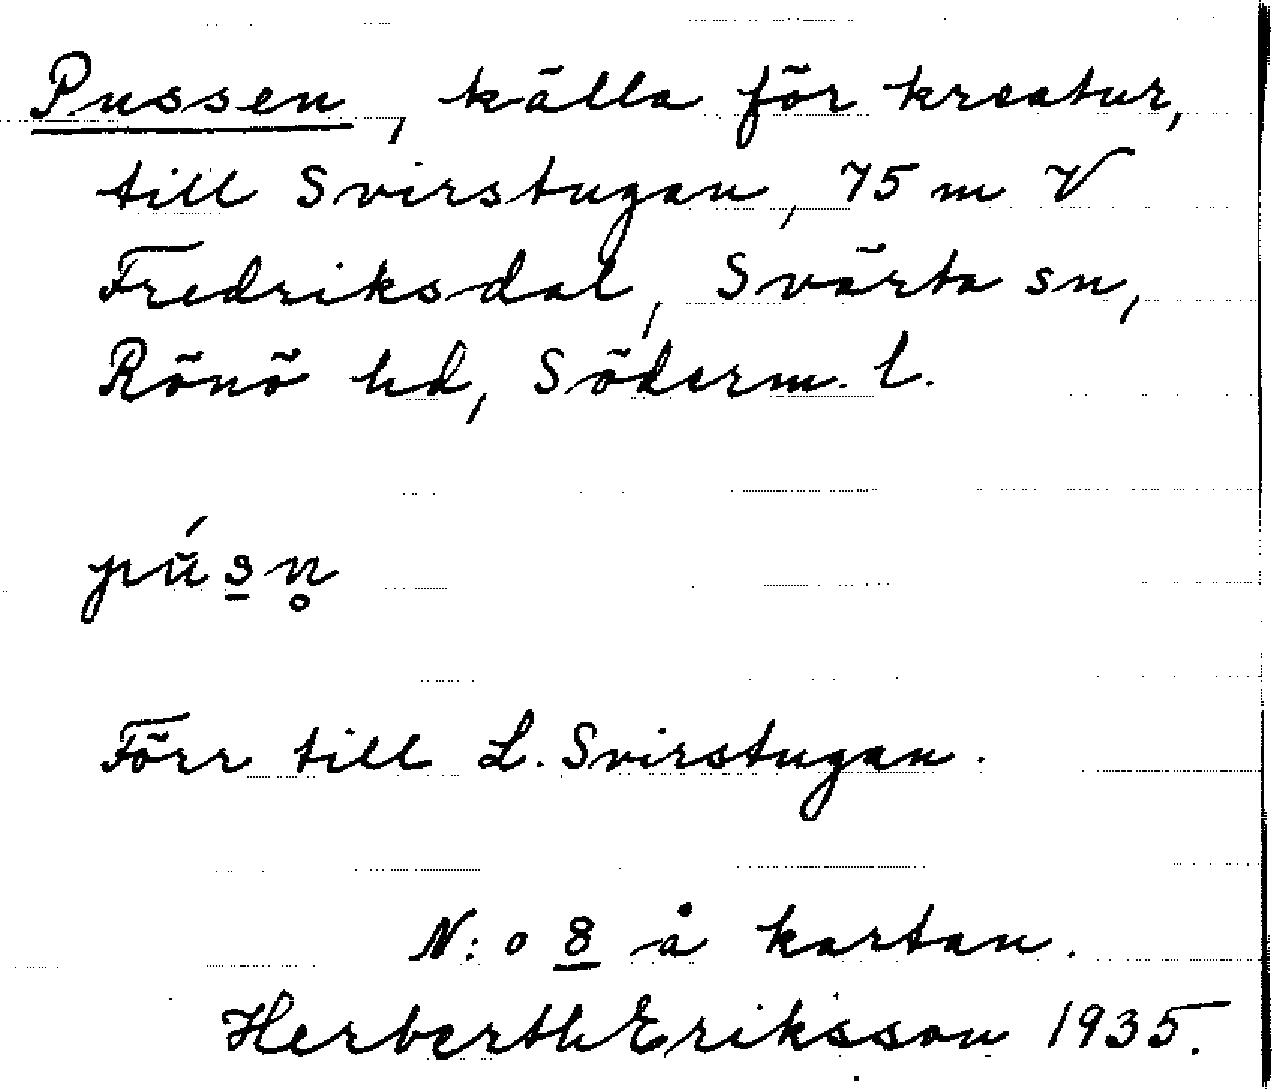 Pussen, källa för kreatur,
till Svirstugan, 75 m V
Fredriksdal, Svärta sn,
Rönö hd, Söderm. l.
Förr till L. Svirstugan.
N:o 8 å kartan.
Herberth Eriksson 1935.